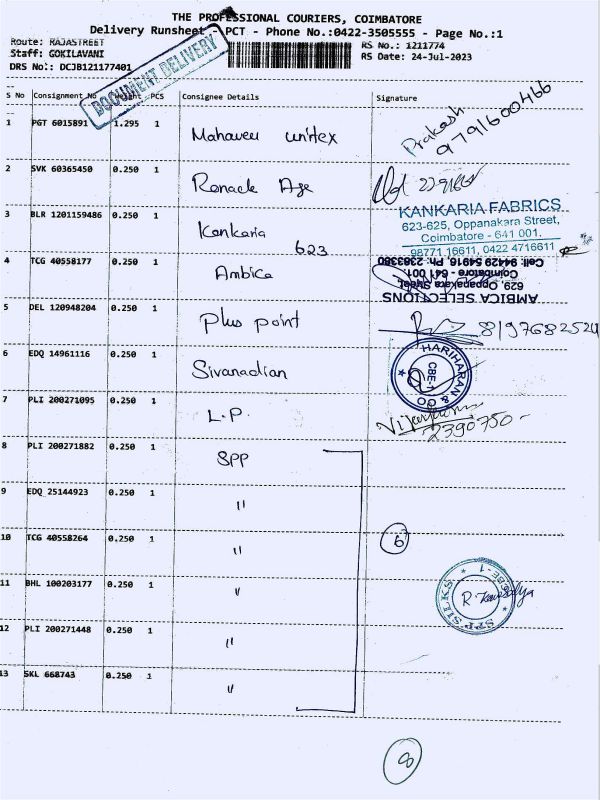 THE PROFESSIONAL COURIERS, COIMBATORE
Delivery Runsheet - PCT - Phone No.:0422-3505555 - Page No.:1
Route: RAJASTREET
RS No.: 1211774
Staff: GOKILAVANI
RS Date: 24-Jul-2023
DRS No.: DCJB121177401
DOCUMENT DELIVERY
S No Consignment No Weight PCS Consignee Details Signature
1 PGT 6015891 1.295 1 Mahaveer unitex Prakash 9791600466
2 SVK 60365450 0.250 1
3 BLR 1201159486 0.250 1 Kankaria 623
KANKARIA FABRICS
623-625, Oppanakara Street,
Coimbatore - 641 001.
98771 16611, 0422 4716611
4 TCG 40558177 0.250 1 Ambica
AMBICA SELECTIONS
629, Oppanakara Street,
Coimbatore - 641 001.
Cell: 94429 54916, Ph: 2383380
5 DEL 120948204 0.250 1 Plus point 8197682524
6 EDQ 14961116 0.250 1 Sivanadian
HARIHARAN & CO
CBE-1
7 PLI 200271095 0.250 1 L.P. 2390750-
8 PLI 200271882 0.250 1 SPP
9 EDQ 25144923 0.250 1 "
10 TCG 40558264 0.250 1 " 6
11 BHL 100203177 0.250 1 "
SPP SILKS CBE-1
12 PLI 200271448 0.250 1 "
13 SKL 668743 0.250 1 "
8